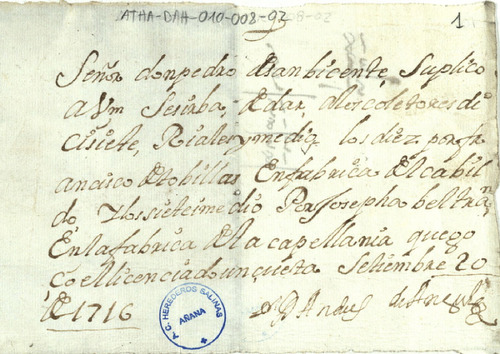 ATHA-DAH-010-008-02
1
Señor don pedro Sanbicente Suplico
a Vm Sesirba, Edar, a los coletores di
cisiete, Riales y medio los diez por fra
ancisco de tobillas En fabrica del cabil
do Y los siete i medio Por Josepha beltran
En la fabrica de la capellania que go
ço el licenciado un cueta Setiembre 20
de 1716
A.C. HEREDEROS SALINAS
AÑANA